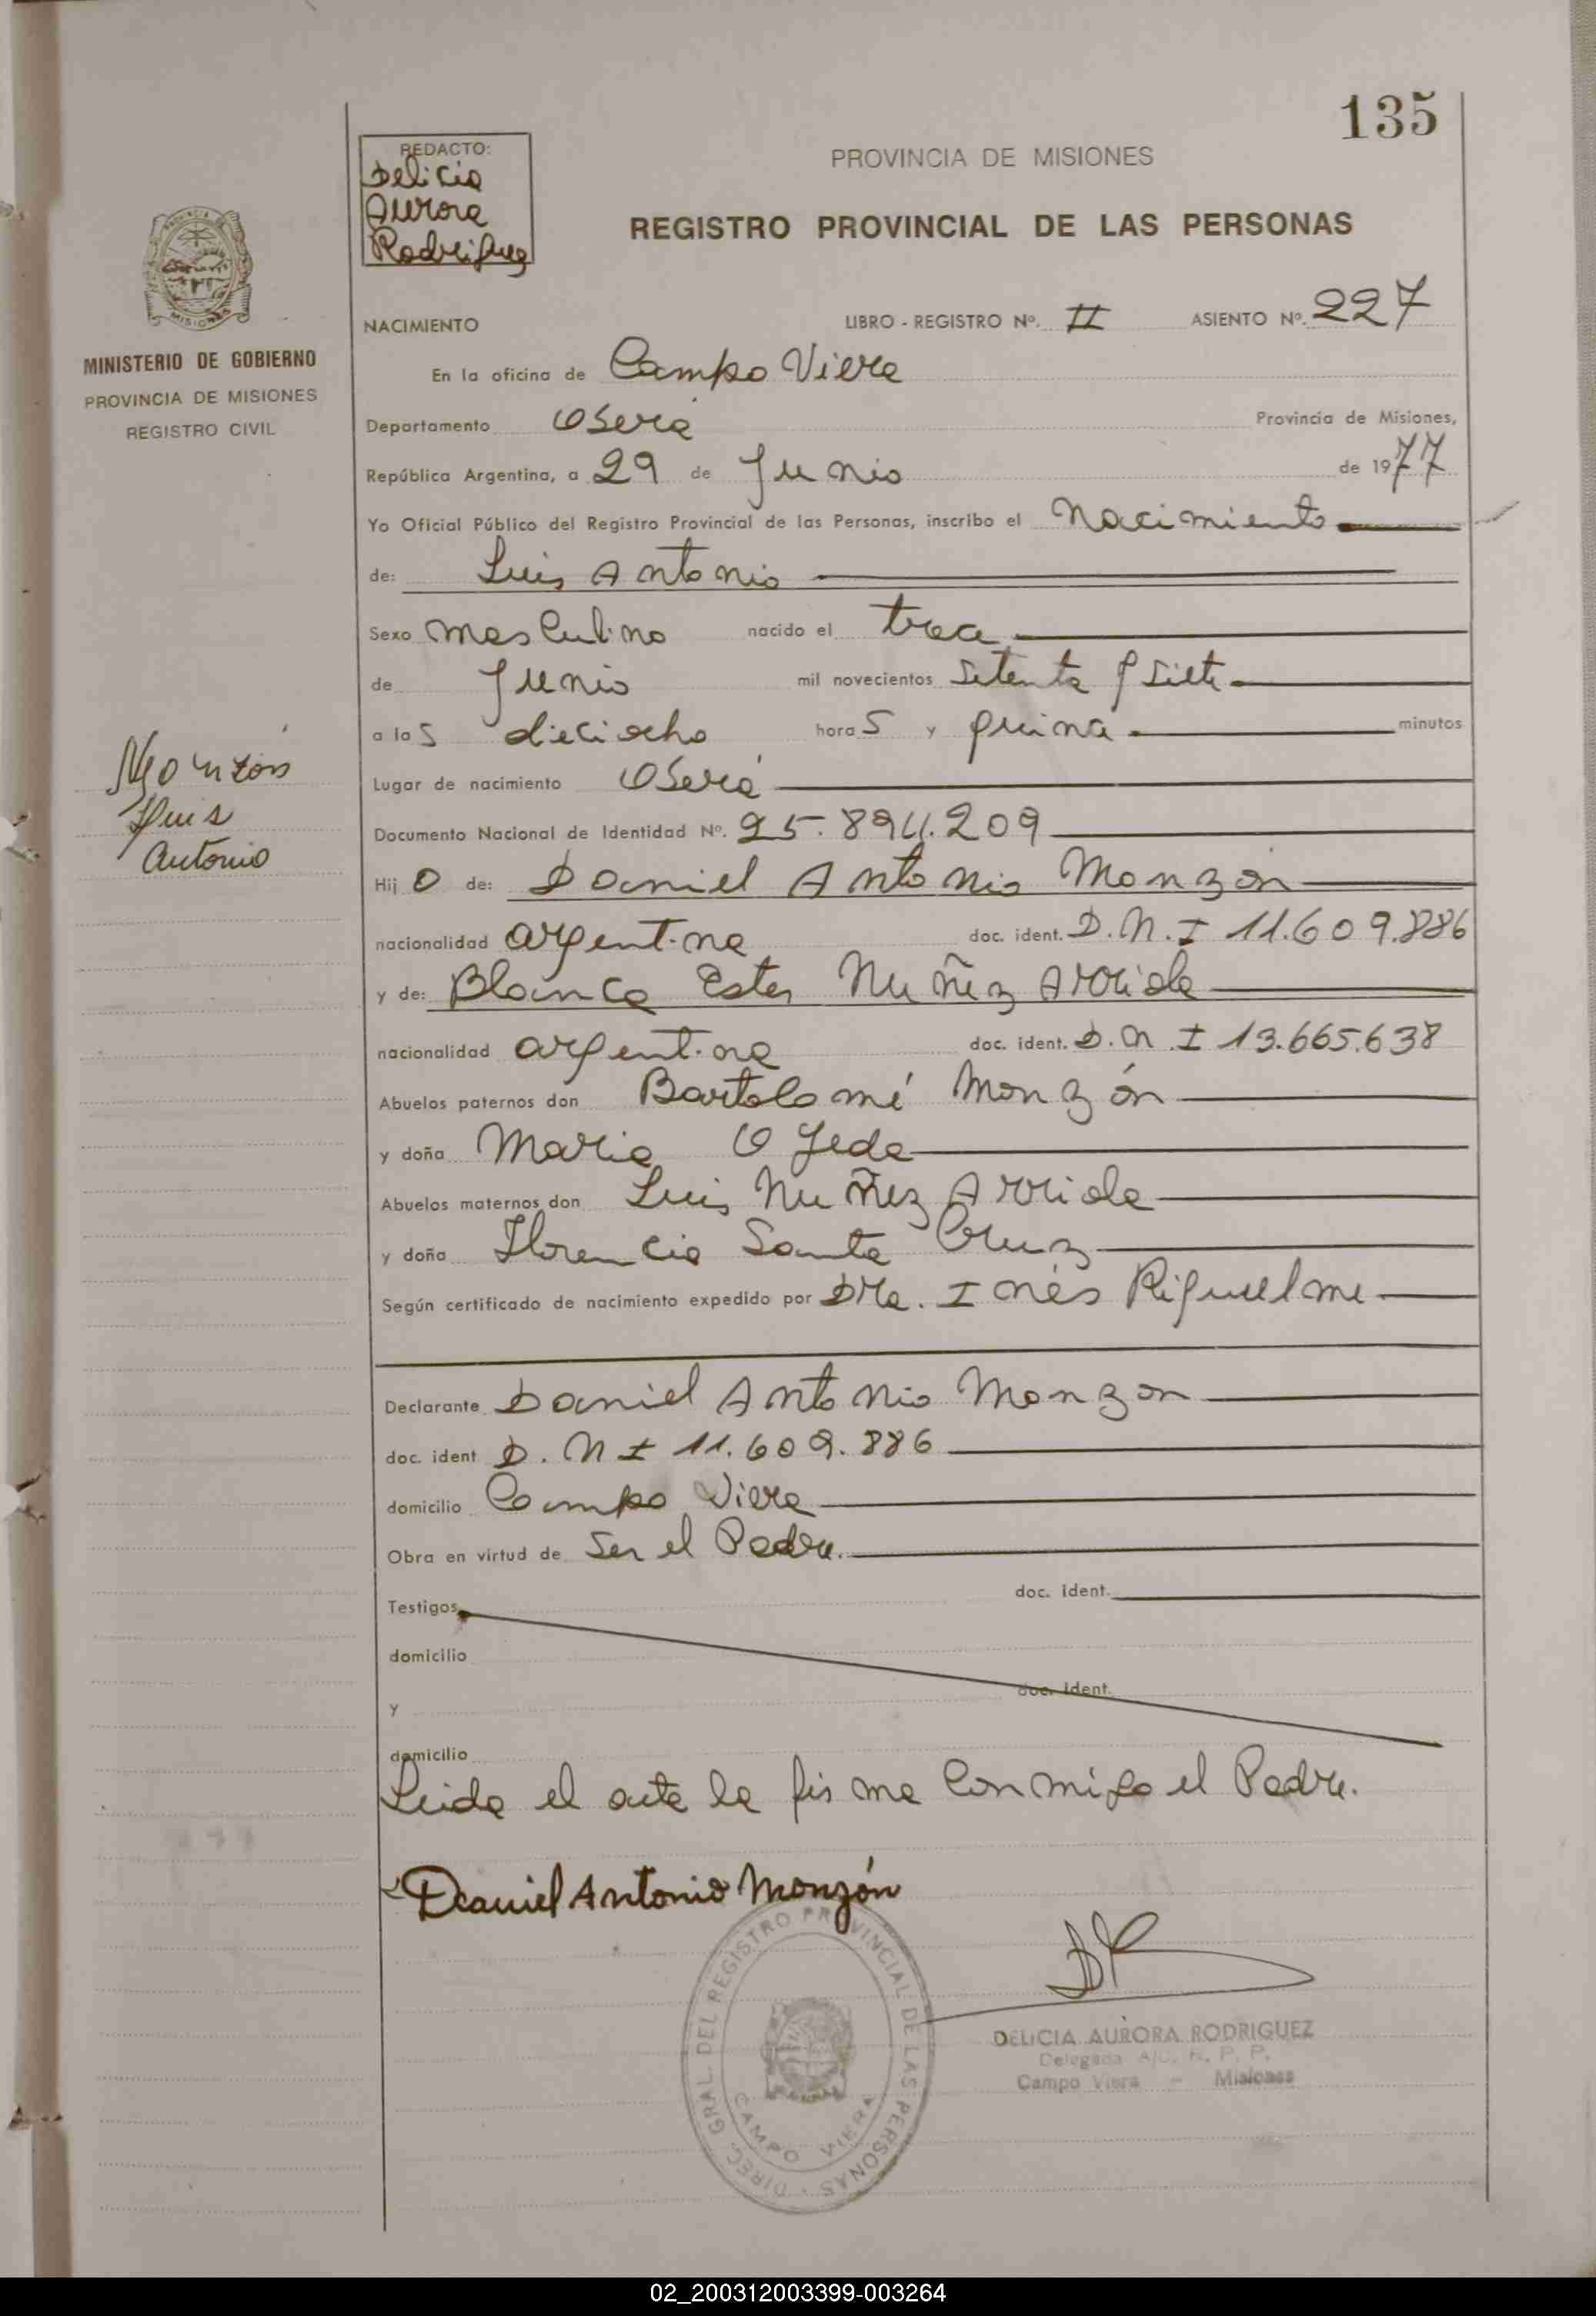 135
REDACTO:
Delicia
Aurora
Rodriguez
PROVINCIA DE MISIONES
REGISTRO PROVINCIAL DE LAS PERSONAS
MISIONES
MINISTERIO DE GOBIERNO
PROVINCIA DE MISIONES
REGISTRO CIVIL
NACIMIENTO LIBRO - REGISTRO Nº. II ASIENTO Nº. 227
En la oficina de Campo Viera
Departamento Oberá Provincia de Misiones,
República Argentina, a 29 de Junio de 1977
Yo Oficial Público del Registro Provincial de las Personas, inscribo el Nacimiento
de: Luis Antonio
Sexo masculino nacido el trece
de Junio mil novecientos setenta y siete
a las dieciocho horas y quince minutos
Monzón
Luis
Antonio
Lugar de nacimiento Oberá
Documento Nacional de Identidad Nº. 25.894.209
Hijo de: Daniel Antonio Monzón
nacionalidad argentina doc. ident. D.N.I 11.609.886
y de: Blanca Ester Nuñez Arriola
nacionalidad argentina doc. ident. D.N.I 13.665.638
Abuelos paternos don Bartolomé Monzón
y doña Maria Ojeda
Abuelos maternos don Luis Nuñez Arriola
y doña Florencia Santa Cruz
Según certificado de nacimiento expedido por Dra. Inés Riquelme
Declarante Daniel Antonio Monzon
doc. ident D.N I 11.609.886
domicilio Campo Viera
Obra en virtud de Ser el Padre.
Testigos doc. ident.
domicilio
y doc. ident.
domicilio
Leida el acta la firma conmigo el Padre.
Daniel Antonio Monzón
DIREC. GRAL. DEL REGISTRO PROVINCIAL DE LAS PERSONAS
CAMPO VIERA
DELICIA AURORA RODRIGUEZ
Delegada R. P. P.
Campo Viera - Misiones
02_200312003399-003264